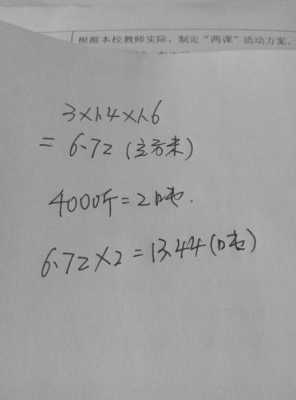 根据本校教师实际，制定“两课”活动方案，
3×1.4×1.6
=6.72(立方米)
4000斤=2吨.
6.72×2=13.44(吨)